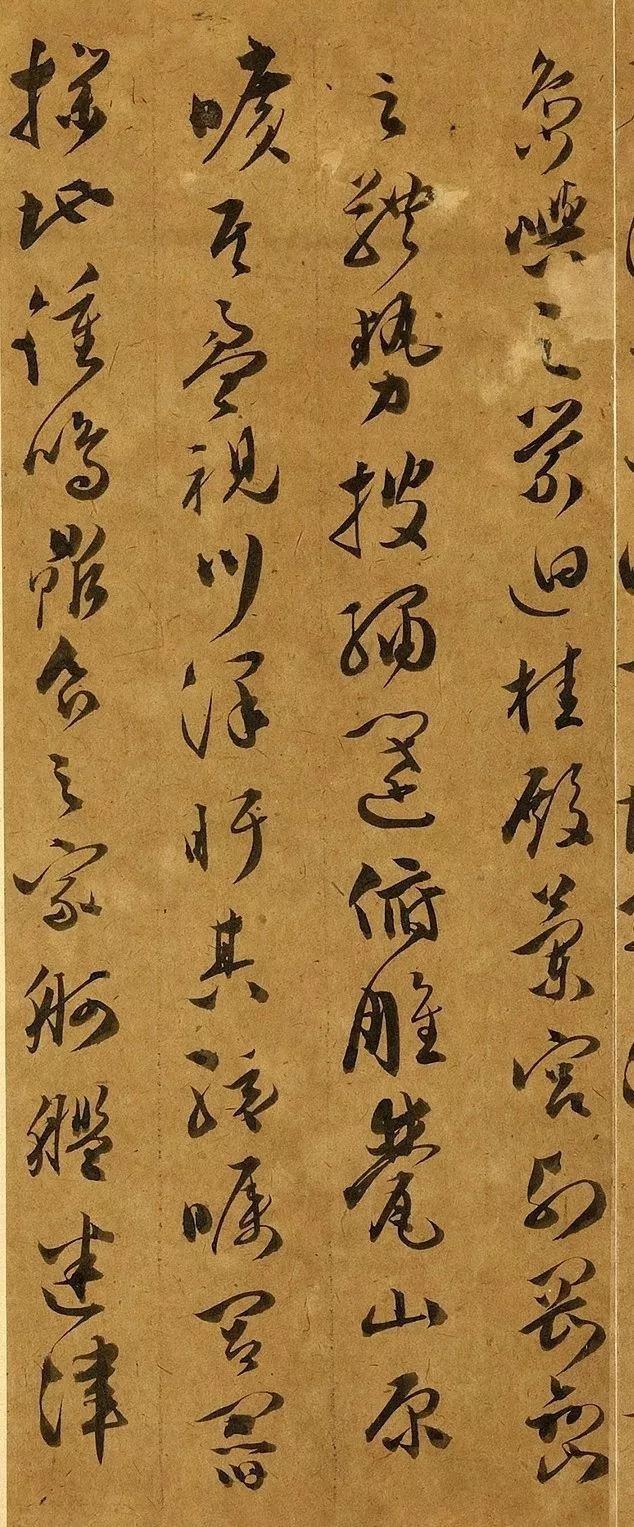 島嶼之縈迴桂殿蘭宮列岡巒
之軆勢披繡闥俯雕甍山原
曠其盈視川澤盱其駭矚閭閻
撲地鍾鳴鼎食之家舸艦迷津